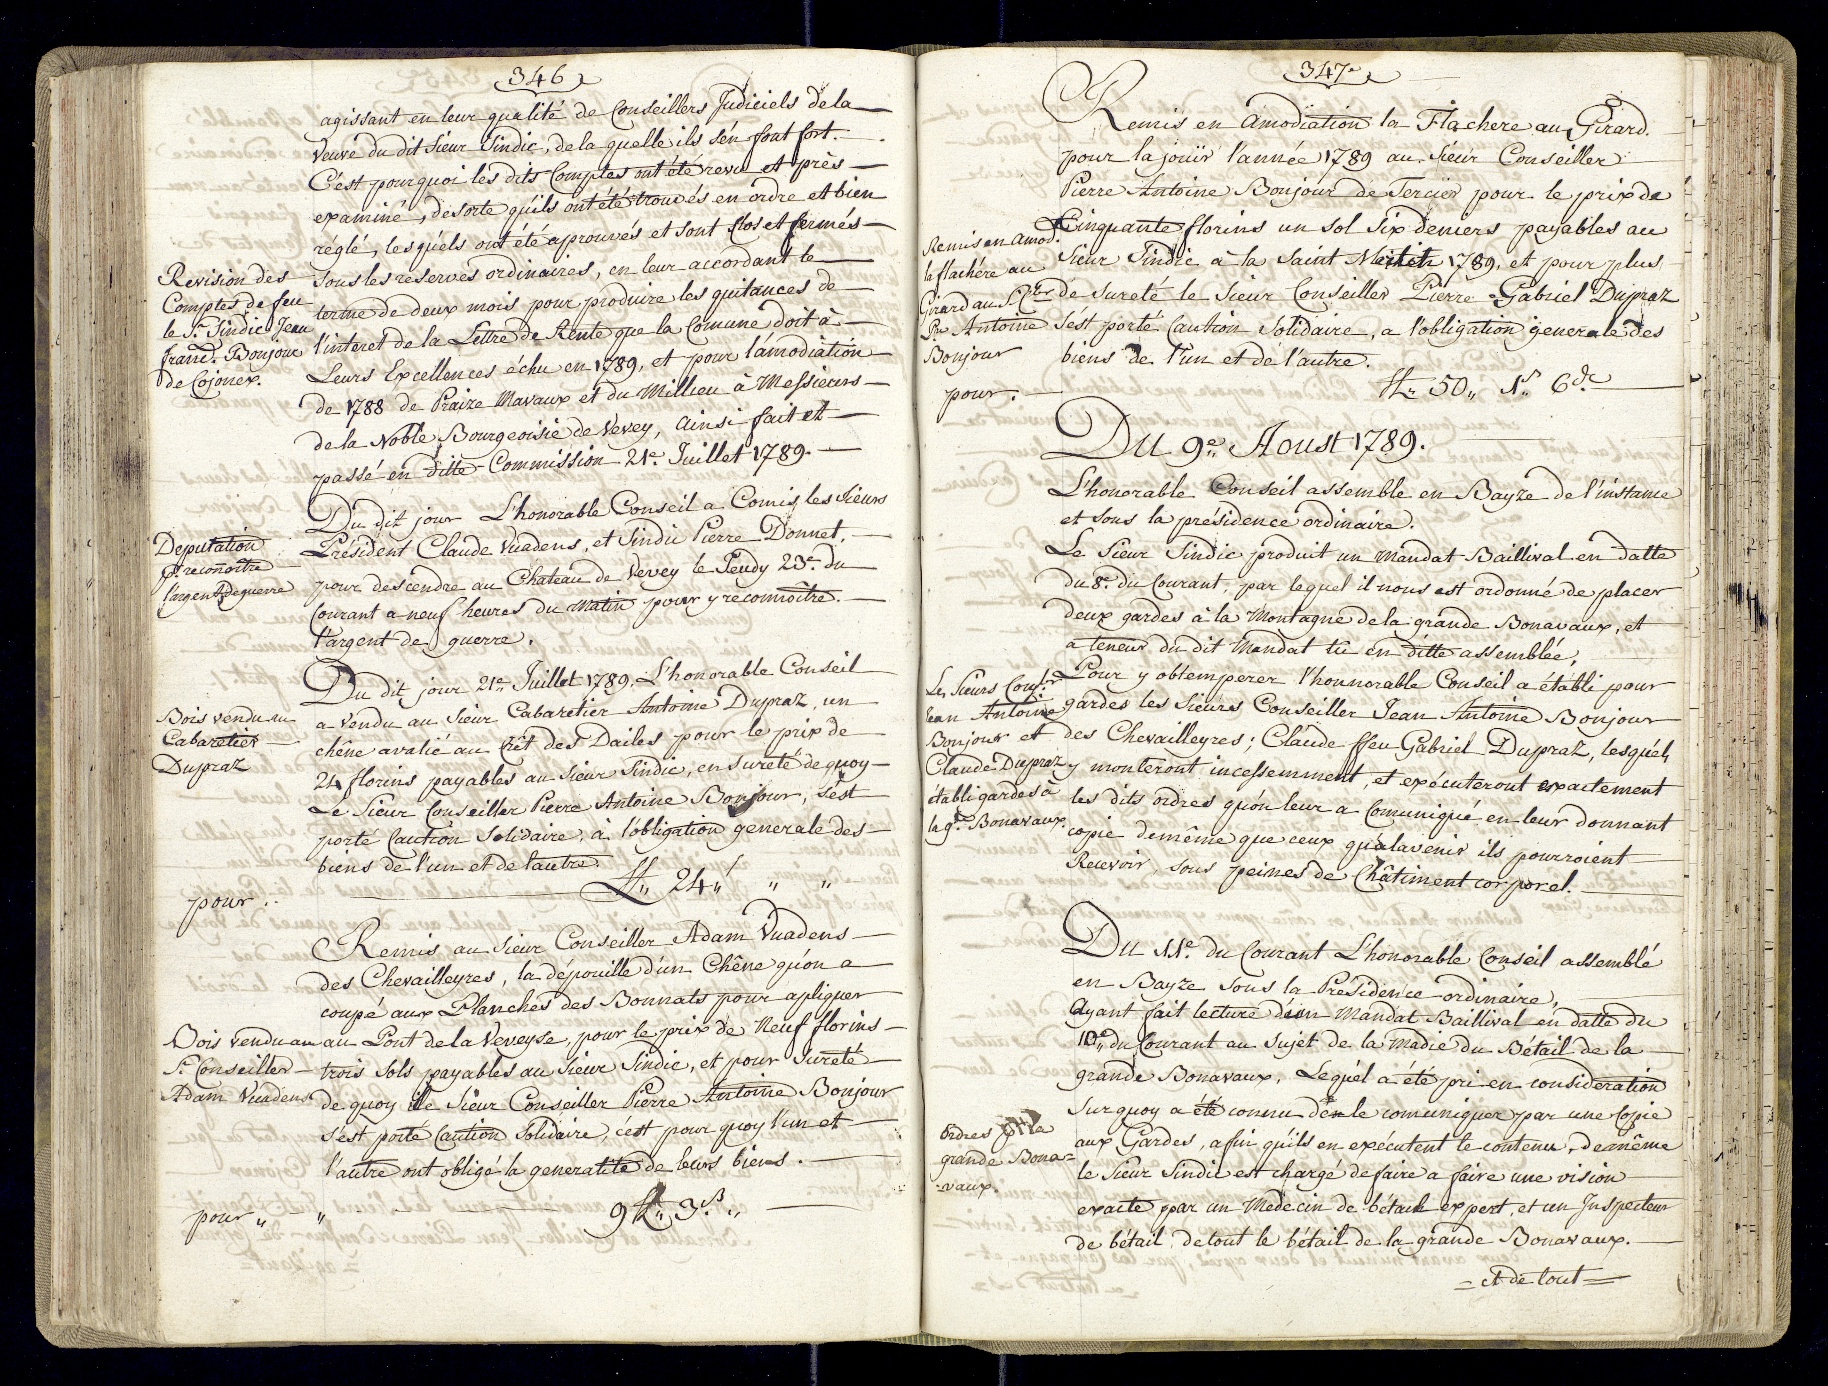 346
agissant en leur qualité de Conseillers Judiciels de la
Veuve du dit Sieur Sindic, de la quelle ils s'én font fort.
C'ést pourquoi lés dits Comptes ont été revu et près
examiné, desorte qu'ils ont été trouvés en ordre et bien
réglé, lesquéls ont été aprouvés et sont clos et fermés
Revision des
Comptes de feu
le Sr. Sindic Jean
Franc. Bonjour
de Cojonex.
sous les reserves ordinaires, en leur accordant le
terme de deux mois pour produire les quitances de
l'interet de la Lettre de Rente que la Comune doit à
Leurs Excellences échu en 1789, et pour l'amodiation
de 1788 de Praize Mavaux et du Millieu à Messieurs
de la Noble Bourgeoisie de Vevey, Ainsi fait et
passé en ditte Commission 21e. Juillet 1789.
Deputation
pr. reconoitre
l'argent de guerre
Du dit jour L'honorable Conseil a Comis les Sieurs
Président Claude Vuadens, et Sindic Pierre Donnet,
pour descendre au Chateau de Vevey le Jeudy 23e. du
Courant a neuf heures du Matin pour y reconnoître
l'argent de guerre.
Bois vendu au
Cabaretier
Dupraz
Du dit jour 21e. Juillet 1789. L'honorable Conseil
a vendu au Sieur Cabaretier Antoine Dupraz, un
chêne avalié au Crêt des Dailes pour le prix de
24 florins payables au Sieur Sindic, en sureté de quoy
Le Sieur Conseiller Pierre Antoine Bonjour, s'ést
porté Caution Solidaire, à l'obligation generale des
biens de l'un et de l'autre.
pour :. ff,, 24,, ,, ,,
Bois vendu au
Sr. Conseiller
Adam Vuadens
Remis au Sieur Conseiller Adam Vuadens
des Chevailleyres, la dépouille d'un Chêne qu'on a
coupé aux Planches des Bonnats pour apliquer
au Pont de la Veveyse, pour le prix de Neuf florins
trois sols payables au Sieur Sindic, et pour Sureté
de quoy le Sieur Conseiller Pierre Antoine Bonjour
s'ést porté Caution Solidaire, c'ést pour quoy l'un et
l'autre ont obligé la generalité de leurs biens.
pour ,, ,, 9 ff,, 3 ß ,,
347
Remis en Amodiation la Flachere au Girard.
pour la joüir l'année 1789 au Sieur Conseiller
Pierre Antoine Bonjour de Tercier pour le prix de
Remis en Amod.
la flachére au
Girard au Sr. Cer.
Pre. Antoine
Bonjour
pour.
Cinquante florins un sol six deniers payables au
Sieur Sindic à la Saint Martin 1789, et pour plus
de sureté le Sieur Conseiller Pierre Gabriel Dupraz
s'ést porté Caution Solidaire, a l'obligation generale des
biens de l'un et de l'autre.
ff,, 50,, 1s,, 6d.
Du 9e. Aoust 1789.
L'honorable Conseil assemble en Bayze de l'instance
et sous la présidence ordinaire.
Le Sieur Sindic produit un Mandat Baillival en datte
du 8e. du Courant, par lequel il nous est ordonné de placer
deux gardes à la Montagne de la grande Bonavaux, et
a teneur du dit Mandat lû en ditte assemblée,
Les Sieurs Conser.
Jean Antoine
Bonjour et
Claude Dupraz
établi gardes à
la gde. Bonavaux.
Pour y obtemperer l'honnorable Conseil a établi pour
gardes les Sieurs Conseiller Jean Antoine Bonjour
des Chevailleyres; Claude ffeu Gabriel Dupraz, lesquéls
y monteront incessemment, et exécuteront exactement
les dits ordres qu'ón leur a Comuniqué en leur donnant
copie demême que ceux qu'alavenir ils pourroient
Recevoir, sous peines de Châtiment corporel.
Du 11e. du Courant L'honorable Conseil assemblé
en Bayze sous la Présidence ordinaire,
Ayant fait lecture d'un Mandat Baillival en datte du
10e. du Courant au sujét de la Madie du Bétail de la
grande Bonavaux, Lequél a été pri en considération
Sur quoy a été connu de le comuniquer par une Copie
ordres pr. la
grande Bona=
=vaux.
aux Gardes, afin qu'ils en exécutent le contenu, demême
le Sieur Sindic est chargé de faire a faire une vision
exacte par un Medecin de bétail expert, et un Inspecteur
de bétail, de tout le bétail de la grande Bonavaux.
= et de tout =